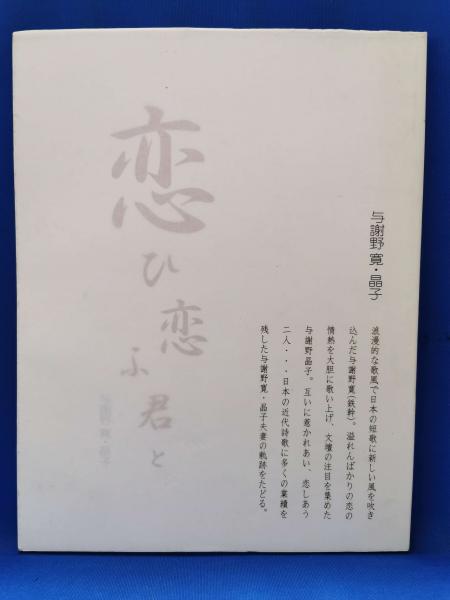 与謝野 寛・晶子
浪漫的な歌風で日本の短歌に新しい風を吹き
込んだ与謝野寛(鉄幹)。溢れんばかりの恋の
情熱を大胆に歌い上げ、文壇の注目を集めた
与謝野晶子。互いに惹かれあい、恋しあう
二人・・・日本の近代詩歌に多くの業績を
残した与謝野寛・晶子夫妻の軌跡をたどる。
恋ひ恋
ふ君と